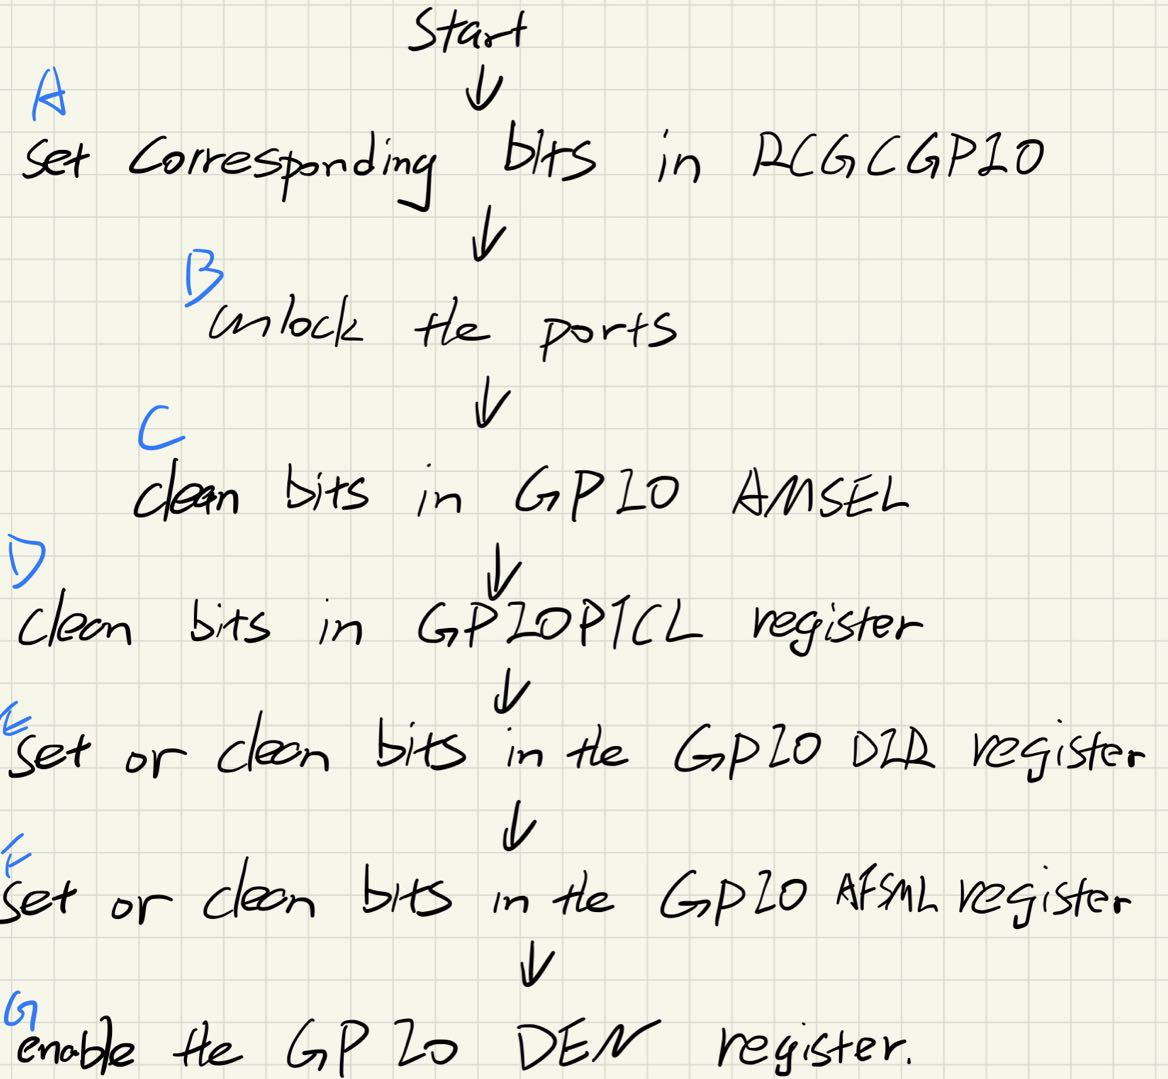 Start
A
set corresponding bits in RCGCGPIO
B
unlock the ports
C
clean bits in GPIO AMSEL
D
clean bits in GPIOPTCL register
E
set or clean bits in the GPIO DIR register
F
set or clean bits in the GPIO AFSML register
G
enable the GPIO DEN register.